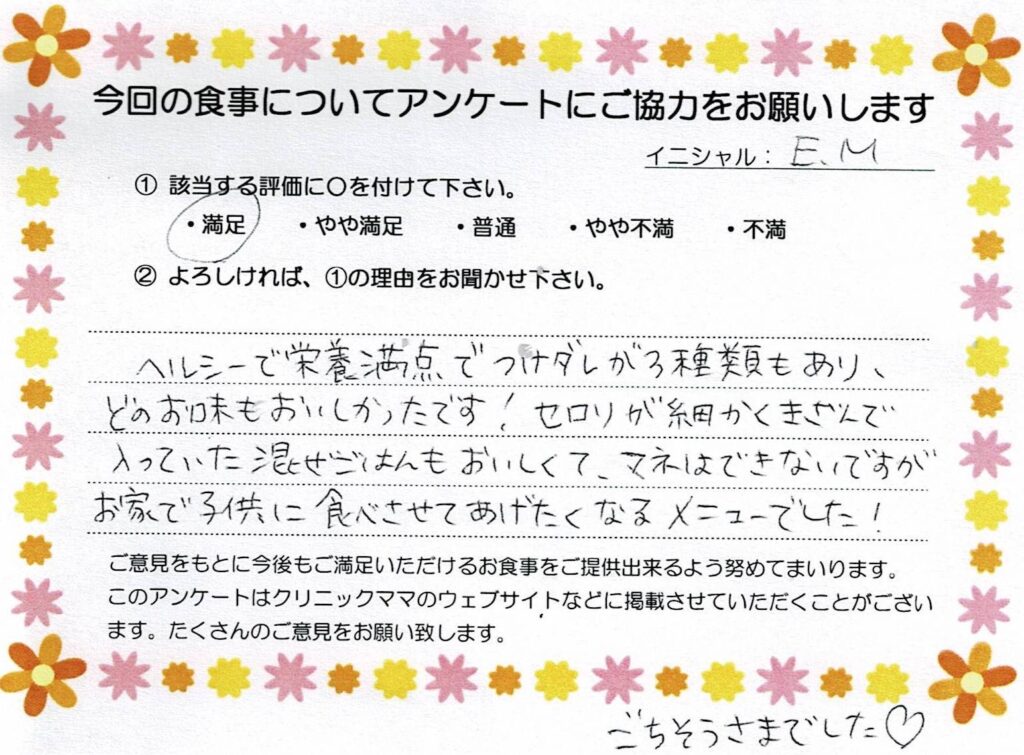 今回の食事についてアンケートにご協力をお願いします
イニシャル： E.M
① 該当する評価に〇を付けて下さい。
・満足 ・やや満足 ・普通 ・やや不満 ・不満
② よろしければ、①の理由をお聞かせ下さい。
ヘルシーで栄養満点でつけダレが3種類もあり、
どのお味もおいしかったです！セロリが細かくきざんで
入っていた混ぜごはんもおいしくて、マネはできないですが
お家で子供に食べさせてあげたくなるメニューでした！
ご意見をもとに今後もご満足いただけるお食事をご提供出来るよう努めてまいります。
このアンケートはクリニックママのウェブサイトなどに掲載させていただくことがござい
ます。たくさんのご意見をお願い致します。
ごちそうさまでした♡